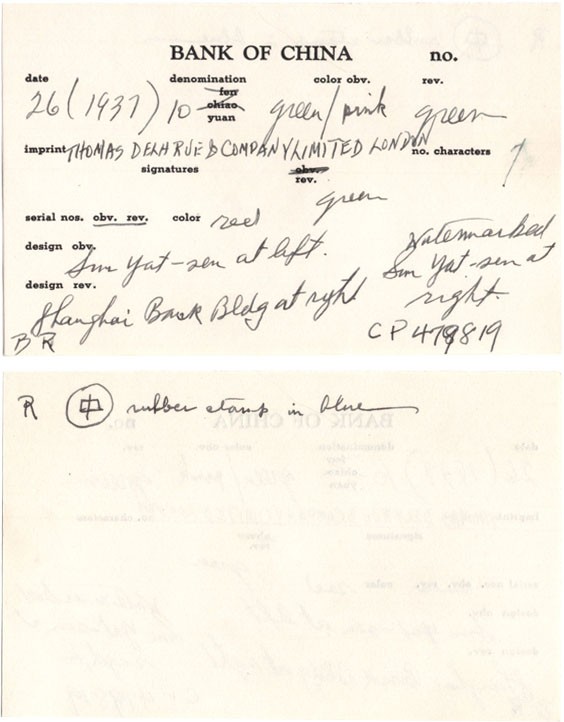 BANK OF CHINA no.
date denomination color obv. rev.
fen
26 (1937) 10 chiao green/pink green
yuan
imprint THOMAS DELA RUE & COMPANY LIMITED LONDON no. characters 7
signatures obv.
rev.
green
serial nos. obv. rev. color red
design obv. Watermarked
Sun Yat-sen at left. Sun Yat-sen at
design rev. right.
Shanghai Bank Bldg at right
BR CP479819
R 中 rubber stamp in blue